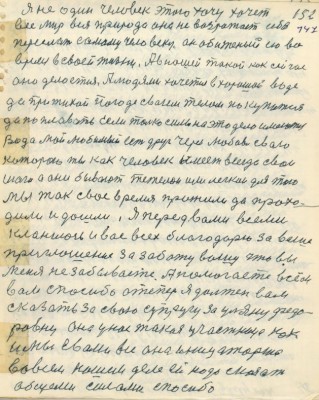 Я не один человек этого хочу хочет 152
все мир вся природа она не возражает себя 747
переслать самому человеку. она обиженый ею во
время в своей жизни. Авиощей такой как сейчас
оно делается. А людям хочется в хорошой воде
да при тихой погоде своем телом по купатся
да по плавать если только силы на это дело имеют
вода мой любимый есть друг через любовь сваю
которою ты как человек имеет всегда свои
шага а они бывают тяжелои или легкои для того
мы так свое время прожили да прохо-
дили и дошли, я перед вами всеми
кланяюсь и вас всех благодарю за ваше
приглошение за заботу вашу что вы
меня не забываете, А помогаете всем
вам спосибо а теперя я должен вам
сказать за свою супругу за Ульяну федо-
ровну она у нас такая участница как
и мы с вами все она инициаторша
во всем нашем деле ей надо сказать
общеми силами спосибо